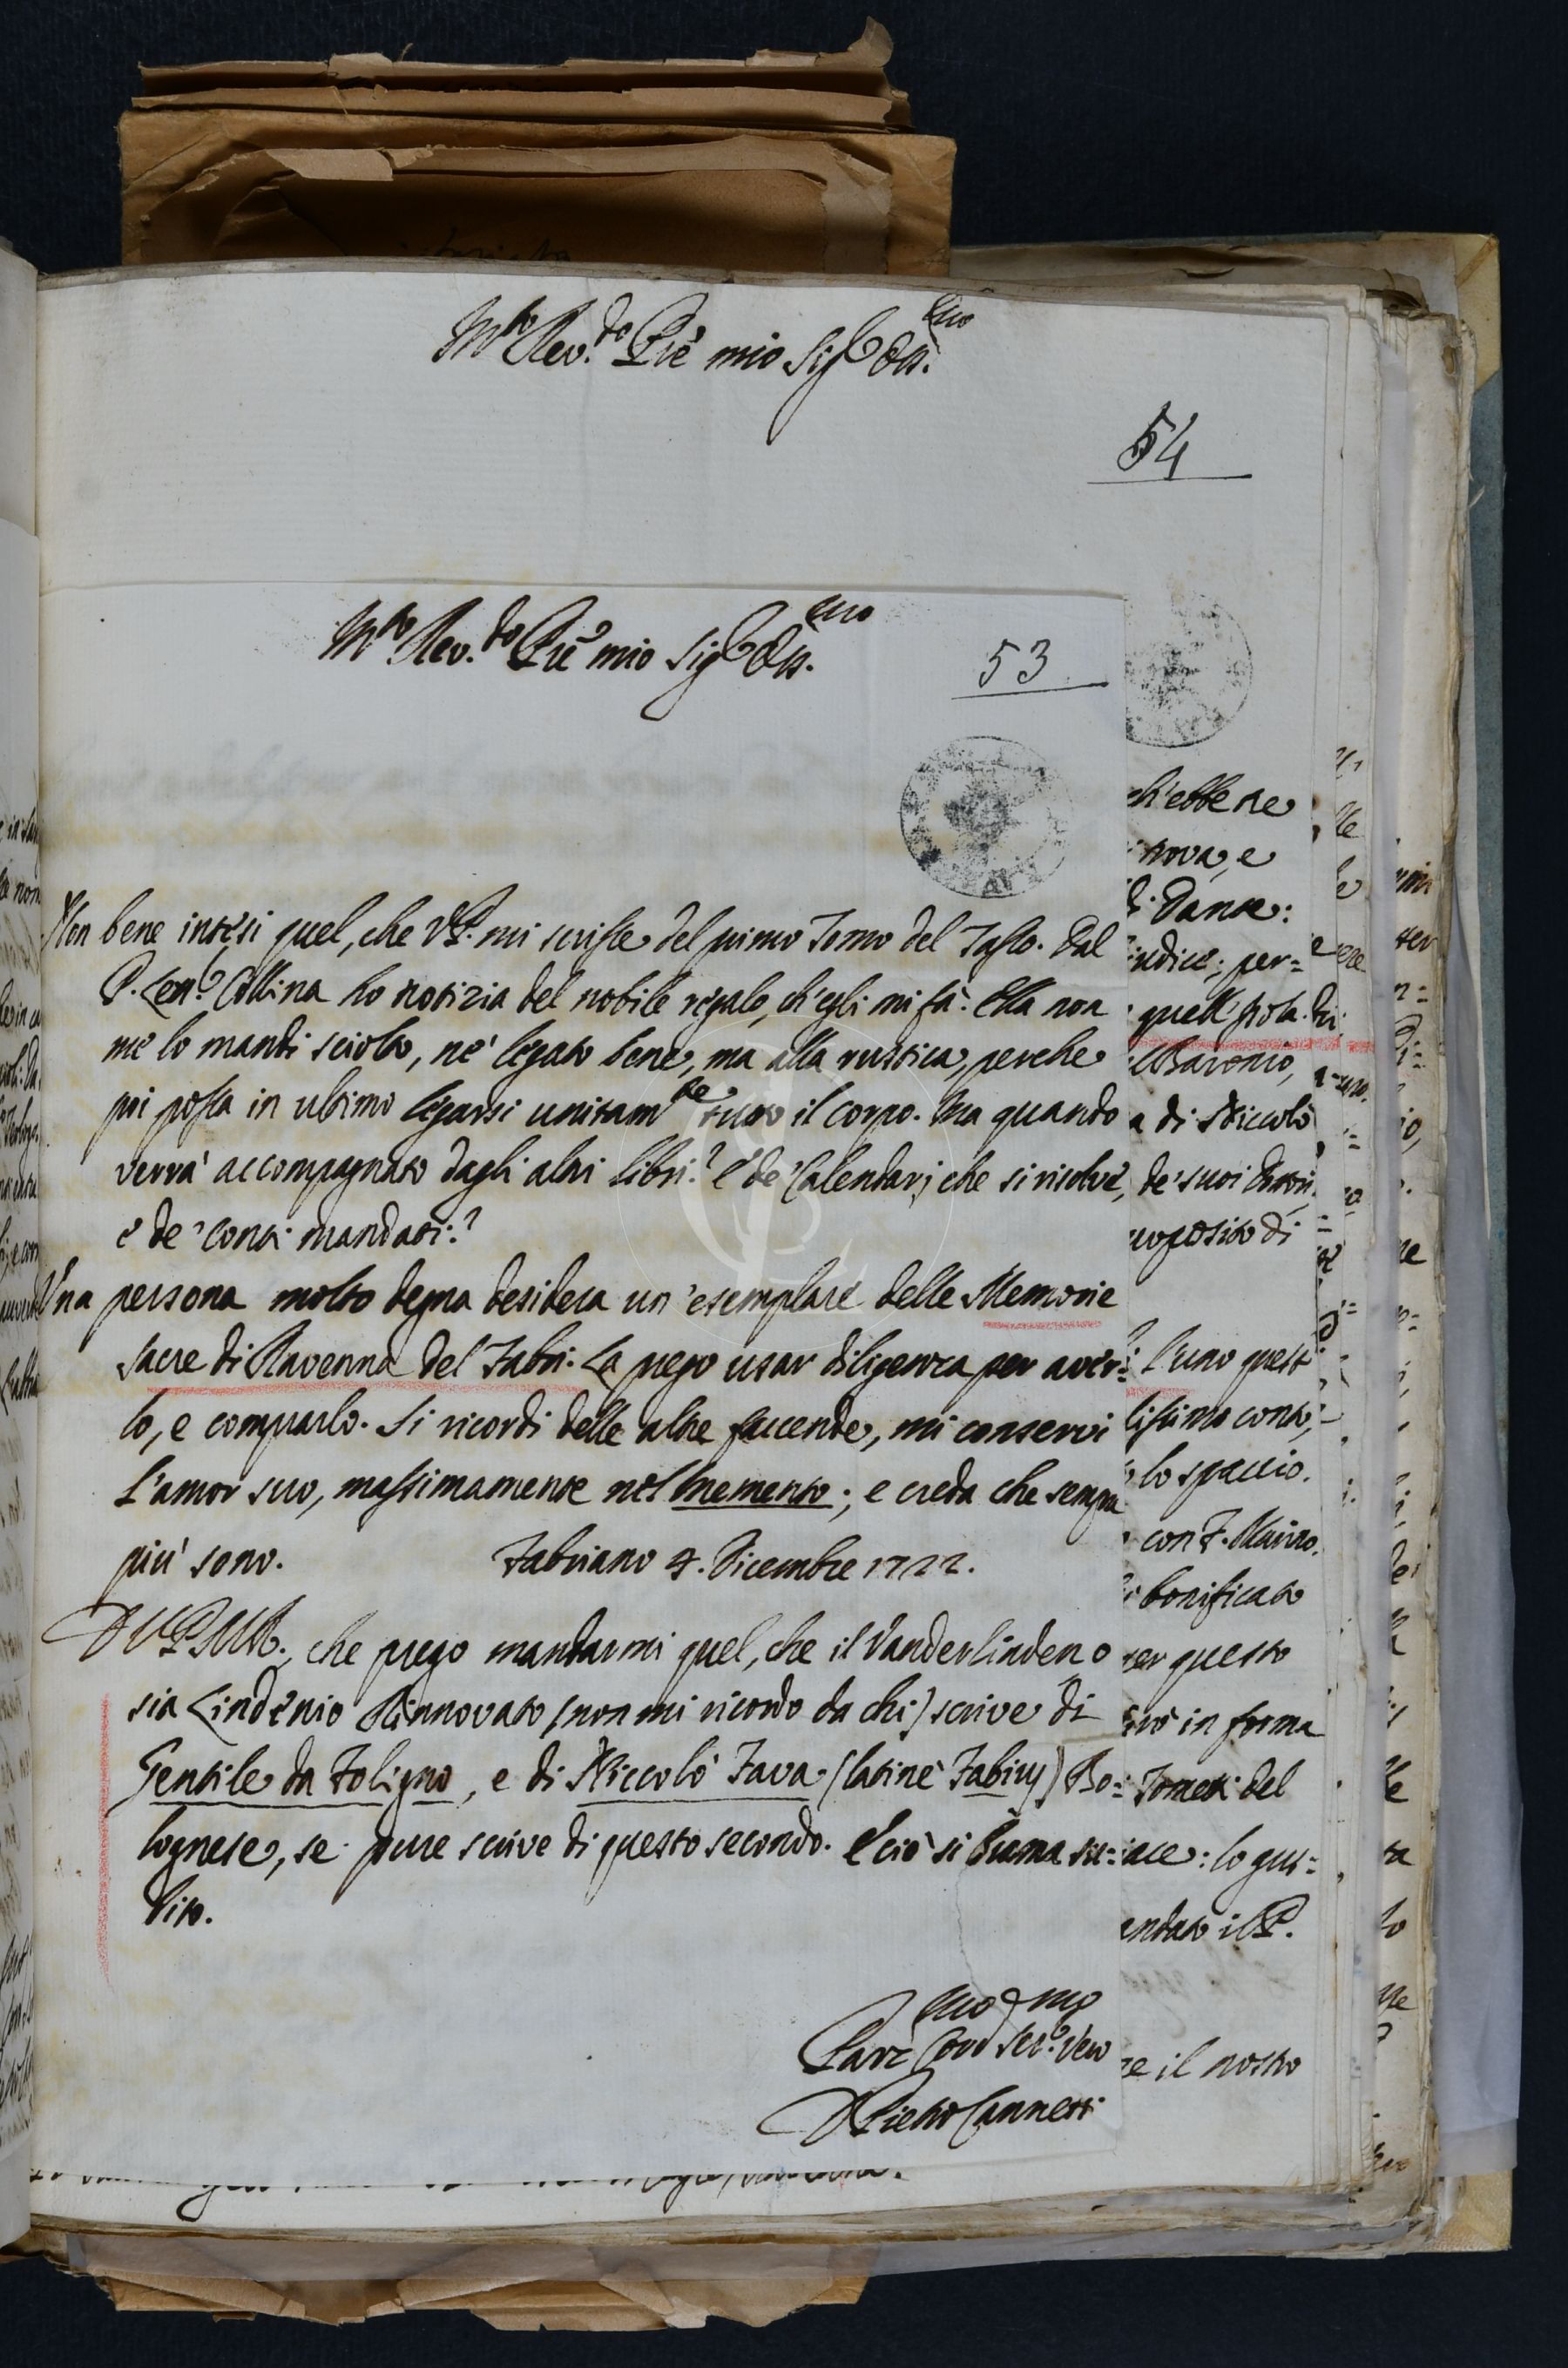 M.to Rev.do Pre mio Sig.r Oss.mo
54
M.to Rev.do Pre mio Sig.r Oss.mo
53
Non bene intesi quel, che V.P. mi scrisse del primo Tomo del Tasso. Dal
P. Collina ho notizia del nobile regalo, ch'egli mi fà. Ella non
me lo mandi sciolto, nè legato bene, ma alla rustica, perche
poi possa in ultimo legarsi unitam.te tutto il corpo. Ma quando
verrà accompagnato dagli altri libri? E de' Calendarj che si risolve,
e de' conti mandati?
Una persona molto degna desidera un'esemplare delle Memorie
sacre di Ravenna del Fabri. La prego usar diligenza per aver=
lo, e comprarlo. Si ricordi delle altre faccende, mi conservi
l'amor suo, massimamente nel Memento; e creda che sempre
più sono. Fabriano 4. Dicembre 1722.
D V.P.M.R., che prego mandarmi quel, che il Vanderlinden o
sia Lindenio Rinnovato (non mi ricordo da chi) scrive di
Gentile da Foligno, e di Niccolò Fava (latine Fabius) Bo=
lognese, se pure scrive di questo secondo. E ciò si brama su=
bito.
Ser.e Vero
D Pietro Cannetti
ch'ebbe ne
nova, e
Dante:
indice; per=
quell'
Baronio,
a di Niccolò
de' suoi
proposito di
l'uno quest
lissimo conto;
lo spaccio.
con F. Mauro.
bonificato
per questo
in forma
Tometti del
ace: lo gus=
andato il P.
re il nostro